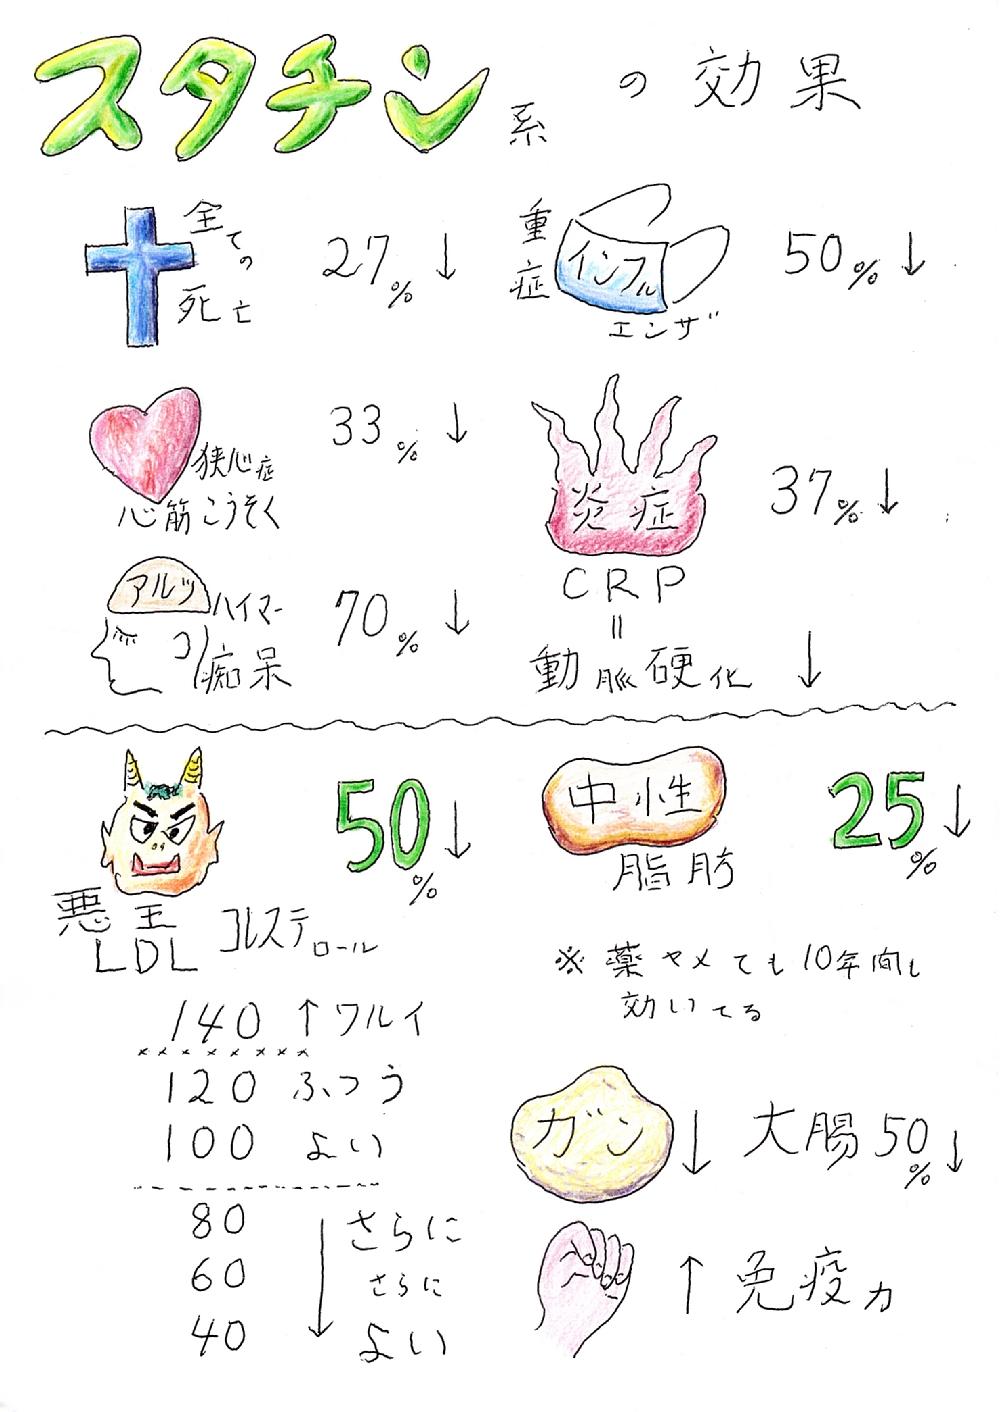 スタチン系の効果
全ての死亡 27% ↓
重症インフルエンザ 50% ↓
狭心症
心筋こうそく 33% ↓
炎症 37% ↓
CRP
=
動脈硬化 ↓
アルツハイマー
痴呆 70% ↓
悪玉
LDL コレステロール 50% ↓
中性
脂肪 25% ↓
※ 薬ヤメても10年間も
効いてる
140 ↑ ワルイ
120 ふつう
100 よい
80 さらに
60 さらに
40 よい
ガン ↓ 大腸50% ↓
↑ 免疫力